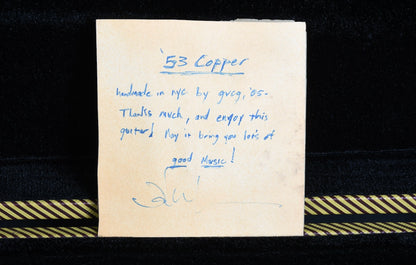 '53 Copper
handmade in nyc by gvcg, '05-
Thanks much, and enjoy this
guitar! May it bring you lots of
good Music!